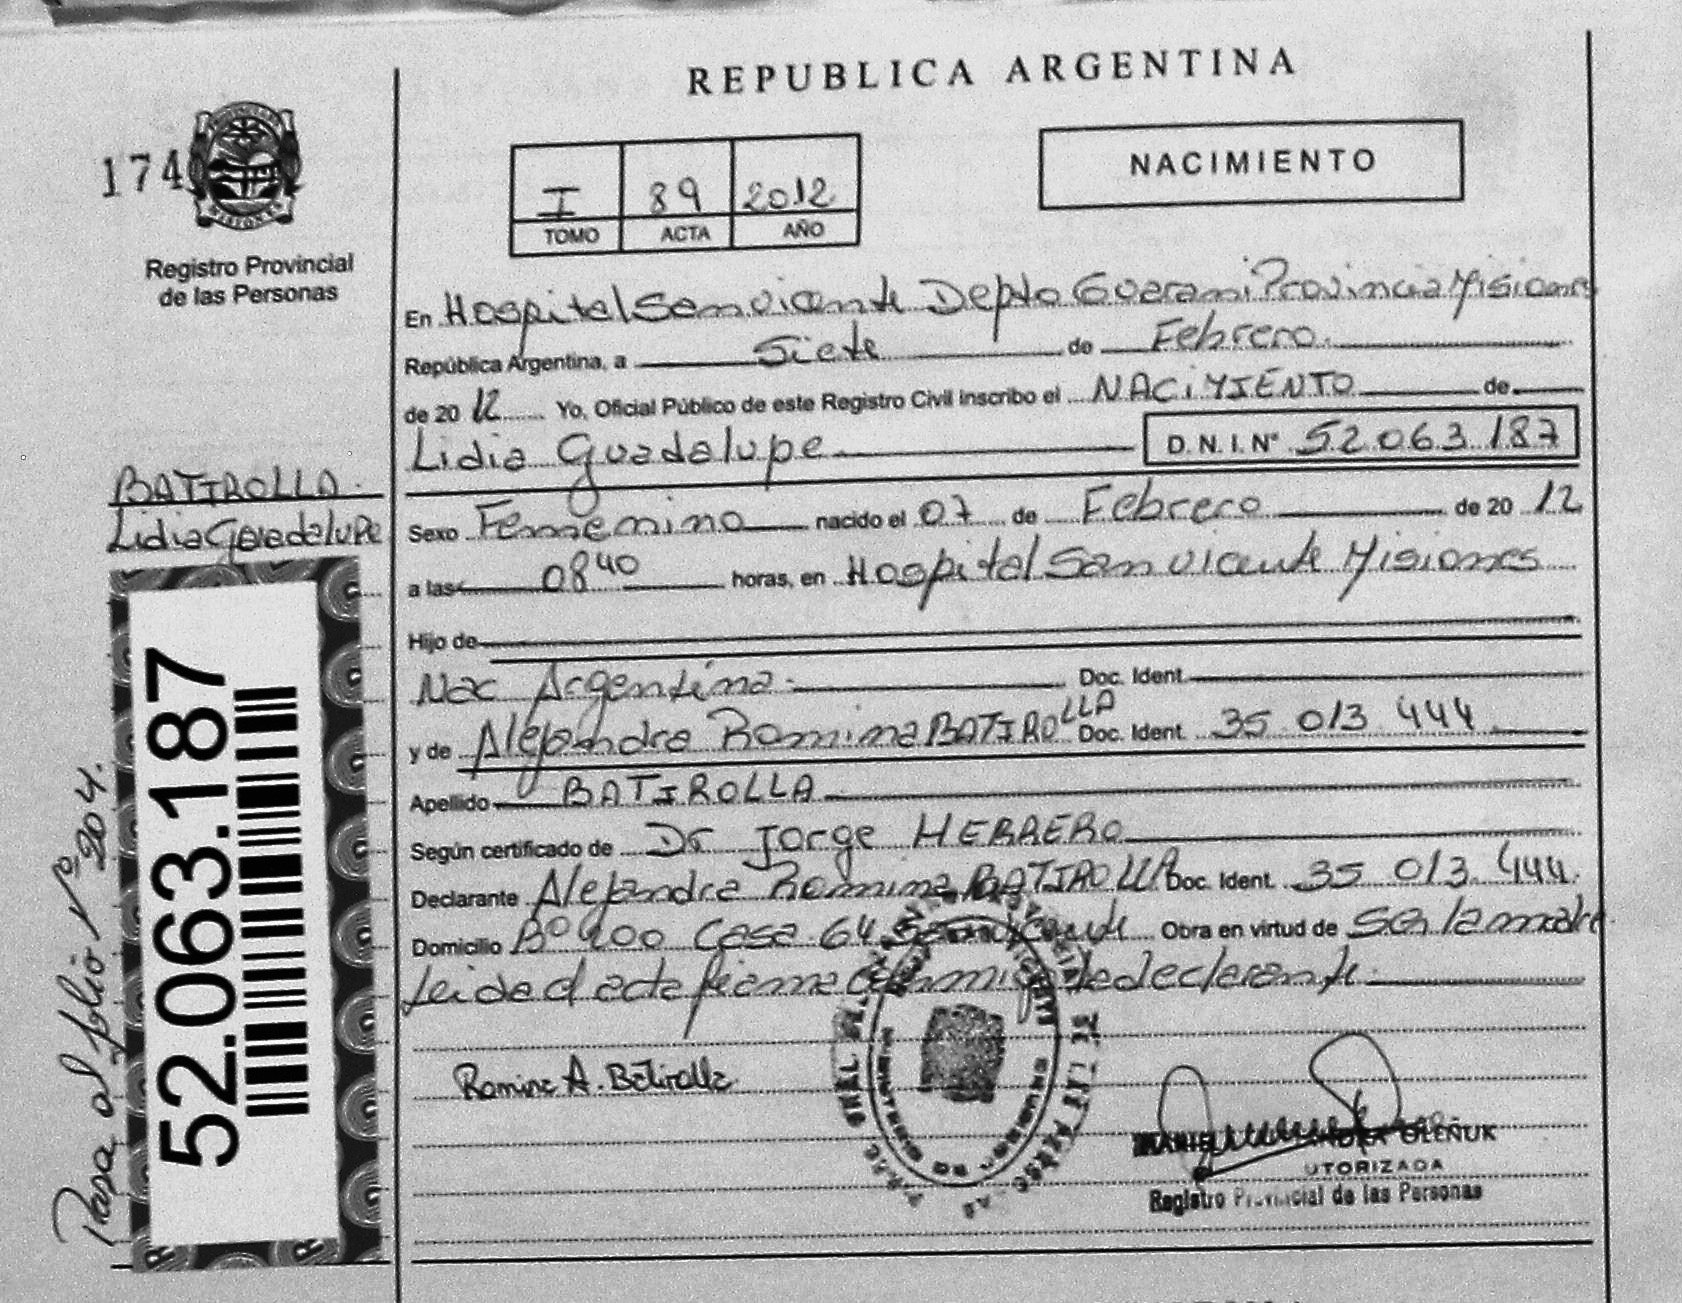 REPUBLICA ARGENTINA
174
Registro Provincial
de las Personas
I 89 2012
TOMO ACTA AÑO
NACIMIENTO
En Hospital San vicente Depto Guarani Provincia Misiones
República Argentina, a Siete de Febrero
de 2012 Yo, Oficial Público de este Registro Civil Inscribo el NACIMIENTO de
Lidia Guadalupe D. N. I. N° 52.063.187
BATIROLLA
Lidia Guadalupe
Sexo Femenino nacido el 07 de Febrero de 2012
a las 08 40 horas, en Hospital San vicente Misiones
Hijo de
Nac Argentina Doc. Ident.
y de Alejandra Romina BATIROLLA Doc. Ident. 35 013 444
Apellido BATIROLLA
Según certificado de Dr Jorge HERRERO
Declarante Alejandra Romina BATIROLLA Doc. Ident. 35 013.444
Domicilio B° 400 Casa 64 San vicente Obra en virtud de Ser la madre
Leida el acta firma conmigo la declarante
Romina A. Batirolla
OLEÑUK
UTORIZADA
Registro Provincial de las Personas
52.063.187
Pasa al folio N° 204.